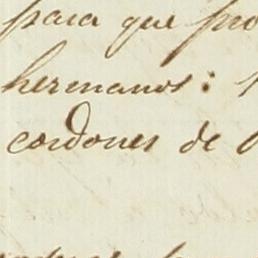 para que pro
hermanos:
cordones de